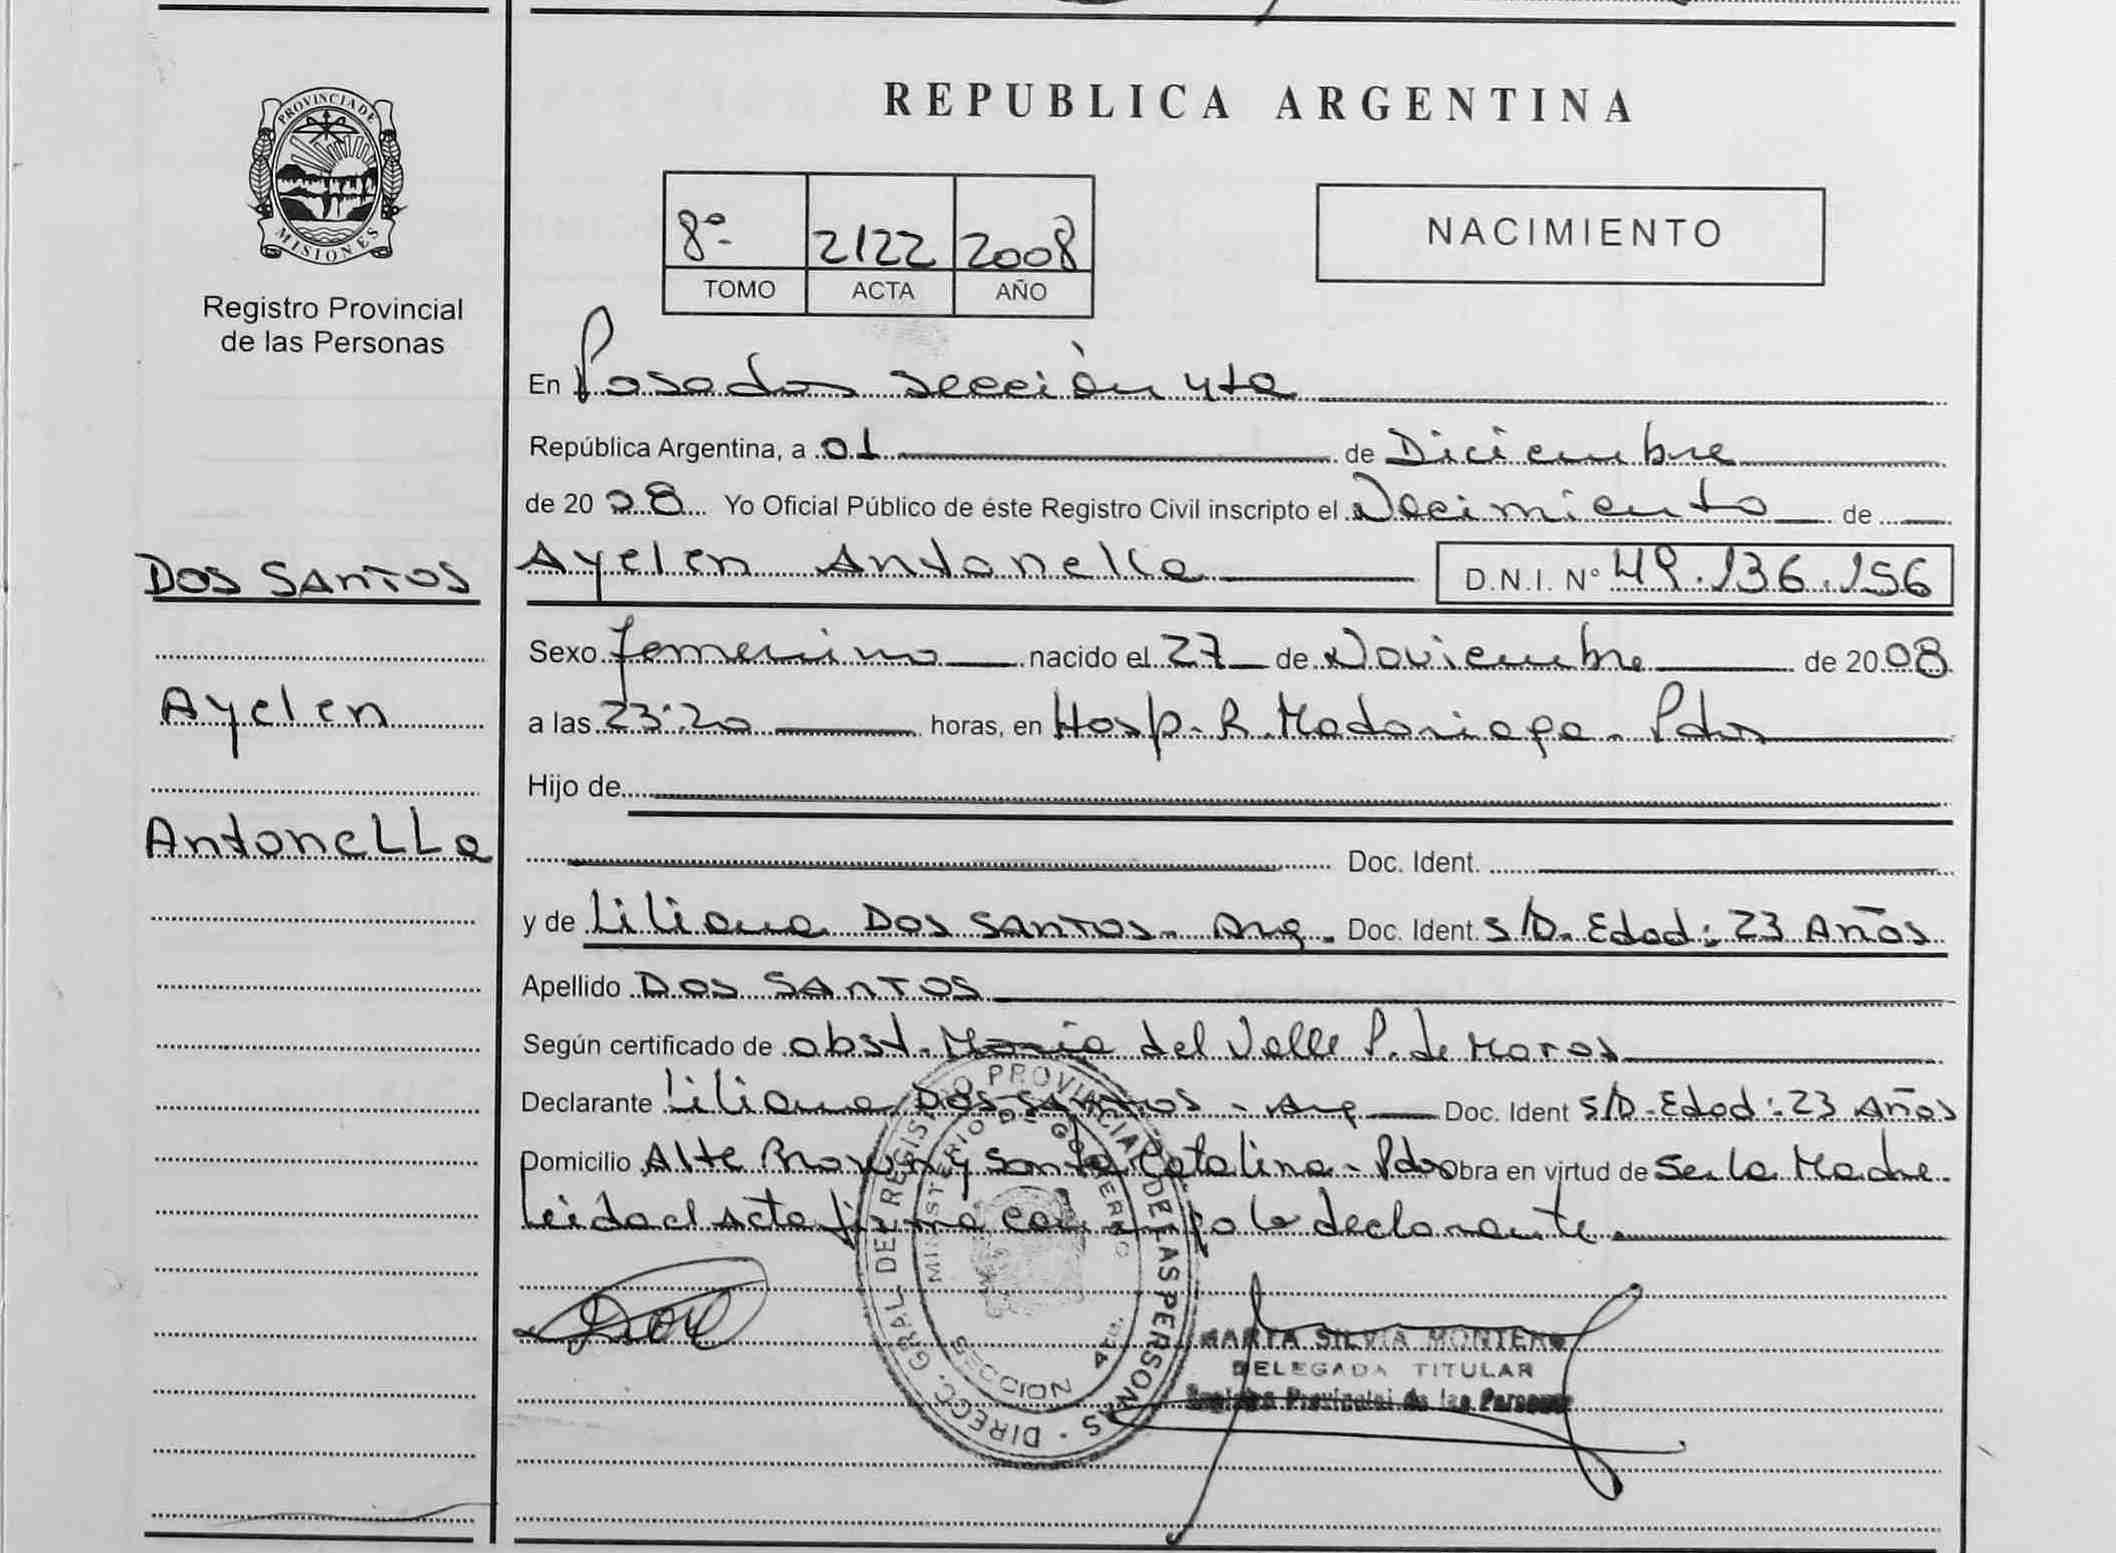 PROVINCIA DE
MISIONES
Registro Provincial
de las Personas
DOS SANTOS
Ayelen
Antonella
REPUBLICA ARGENTINA
8º 2122 2008
TOMO ACTA AÑO
NACIMIENTO
En Posadas sección 4ta
República Argentina, a 01 de Diciembre
de 20 08 Yo Oficial Público de éste Registro Civil inscripto el Nacimiento de
Ayelen Antonella D.N.I. Nº 49.136.156
Sexo femenino nacido el 27 de Noviembre de 20 08
a las 23:20 horas, en Hosp. R. Madariaga - Pdas
Hijo de
Doc. Ident.
y de Liliana DOS SANTOS - Arg. Doc. Ident. S/D. Edad: 23 Años
Apellido DOS SANTOS
Según certificado de obst. María del Valle P. de Maros
Declarante Liliana DOS SANTOS - Arg Doc. Ident S/D - Edad: 23 Años
Domicilio Alte Brown y Santa Catalina - Pdas Obra en virtud de Ser la Madre
Leida el acta firma conmigo la declarante
DIRECC. GRAL. DEL REGISTRO PROVINCIAL DE LAS PERSONAS
MINISTERIO DE GOBIERNO
SECCION 4TA.
MARTA SILVIA MONTERO
DELEGADA TITULAR
Registro Provincial de las Personas